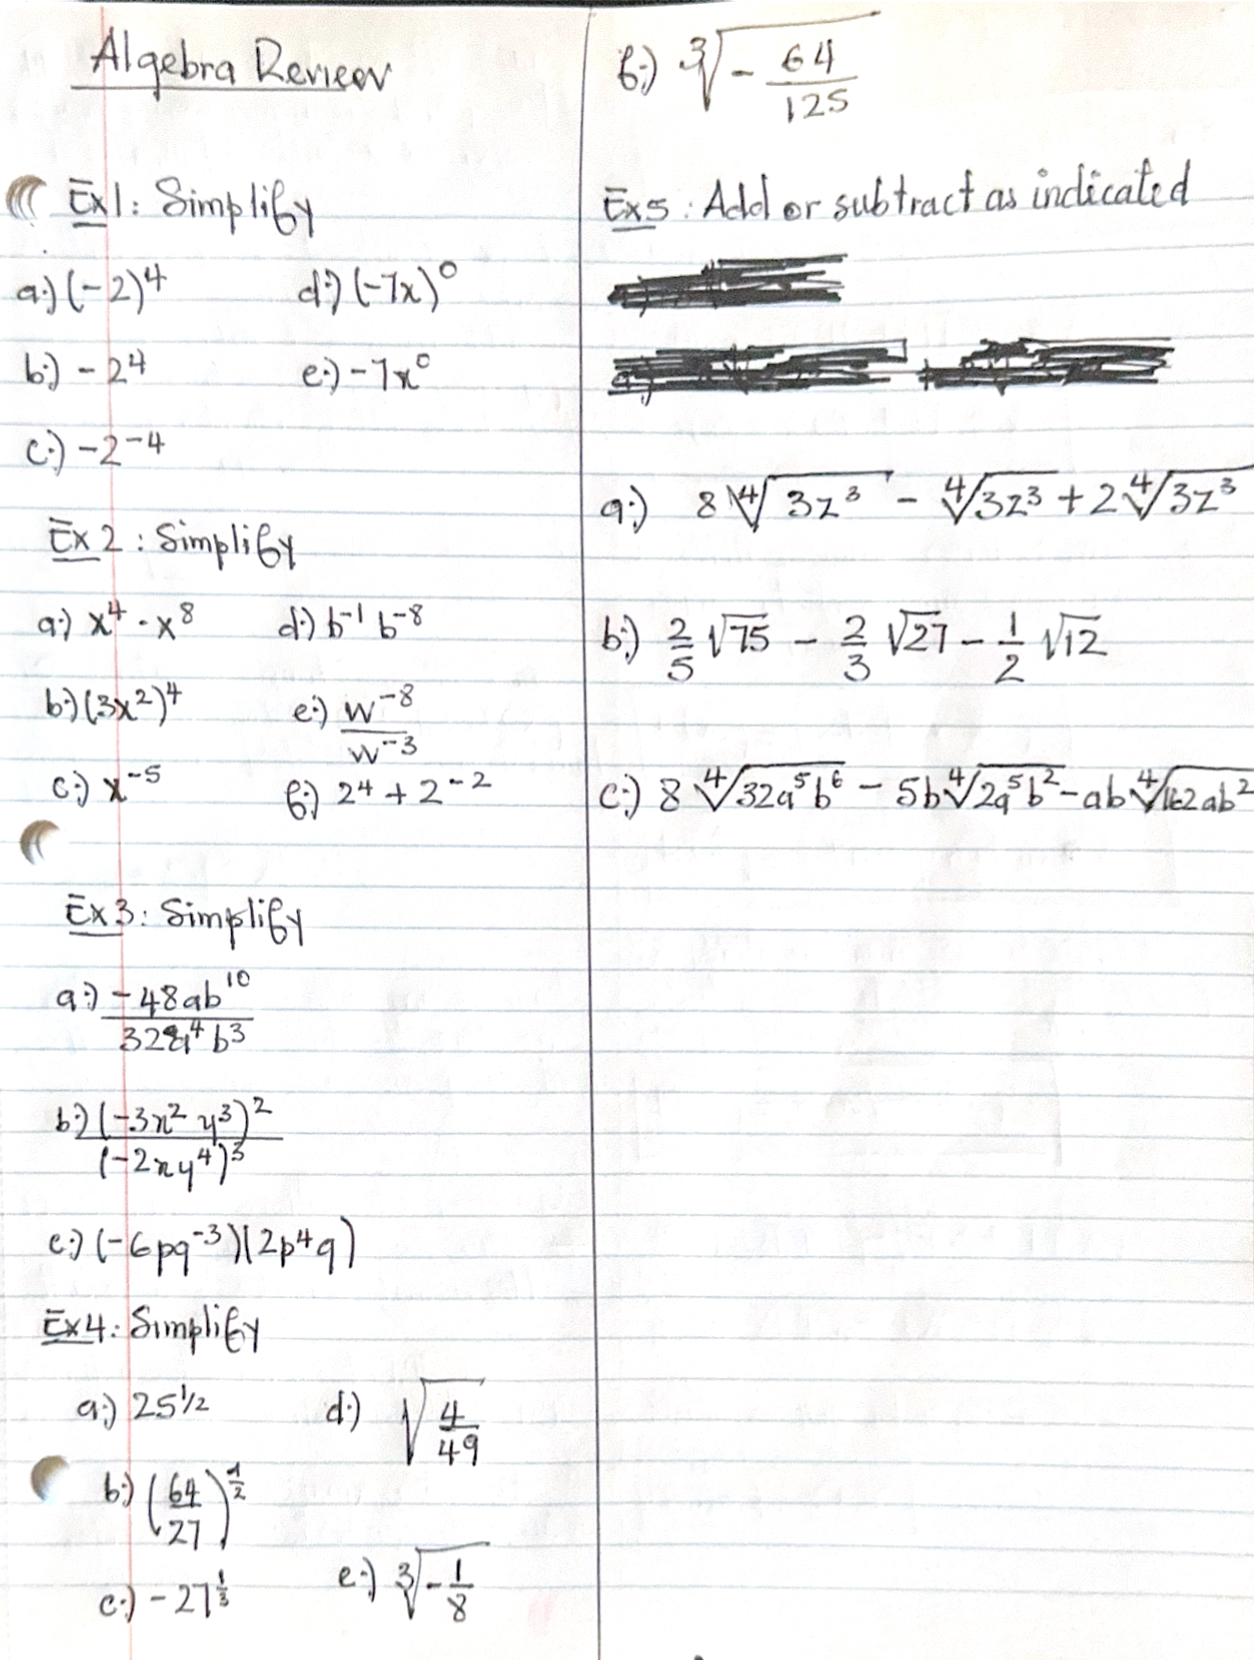 Algebra Review
Ex1: Simplify
a.) (-2)⁴ d.) (-7x)⁰
b.) -2⁴ e.) -7x⁰
c.) -2⁻⁴
Ex 2: Simplify
a.) x⁴ · x⁸ d.) b⁻¹ b⁻⁸
b.) (3x²)⁴ e.) w⁻⁸/w⁻³
c.) x⁻⁵ f.) 2⁴ + 2⁻²
Ex3: Simplify
a.) -48ab¹⁰/32a⁴b³
b.) (-3x² y³)²/(-2xy⁴)³
c.) (-6pq⁻³)(2p⁴q)
Ex4: Simplify
a.) 25^1/2 d.) √(4/49)
b.) (64/27)^1/2
c.) -27^1/3 e.) ∛(-1/8)
f.) ∛(-64/125)
Ex5: Add or subtract as indicated
a.) 8 ∜(3z³) - ∜(3z³) + 2 ∜(3z³)
b.) 2/5 √75 - 2/3 √27 - 1/2 √12
c.) 8 ∜(32a⁵b⁶) - 5b ∜(2a⁵b²) - ab ∜(162ab²)